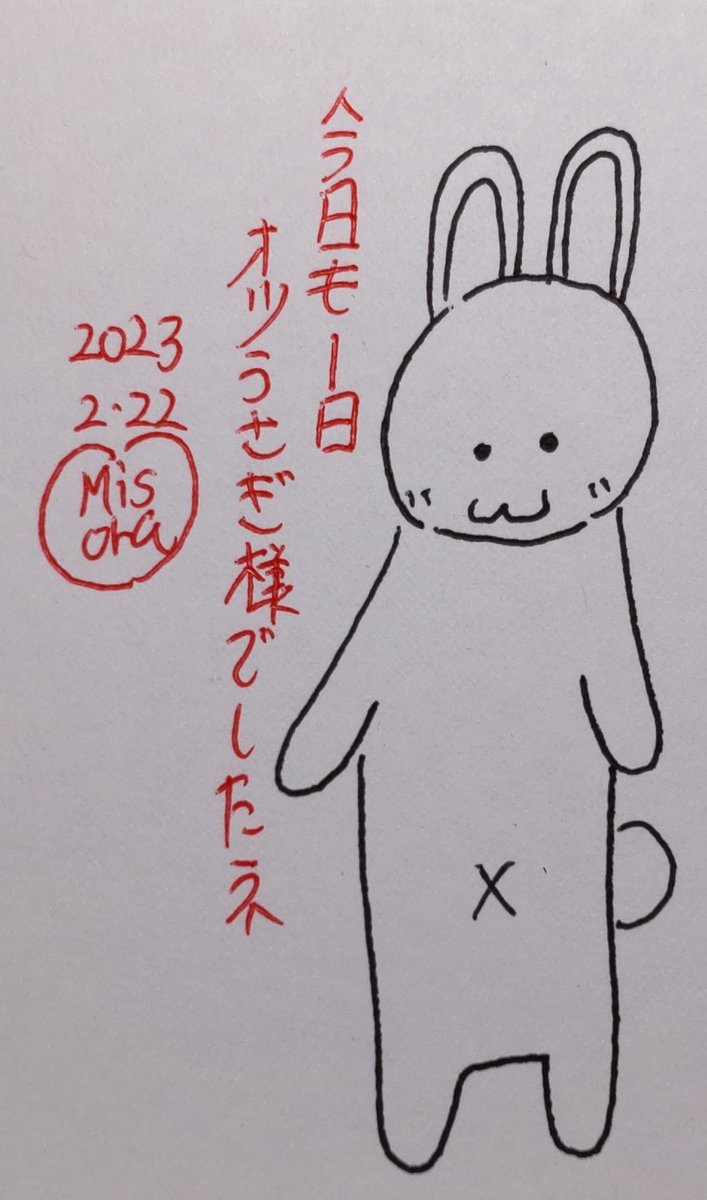 今日モ一日
オツうさぎ様でしたネ
2023
2.22
Mis
ora
X